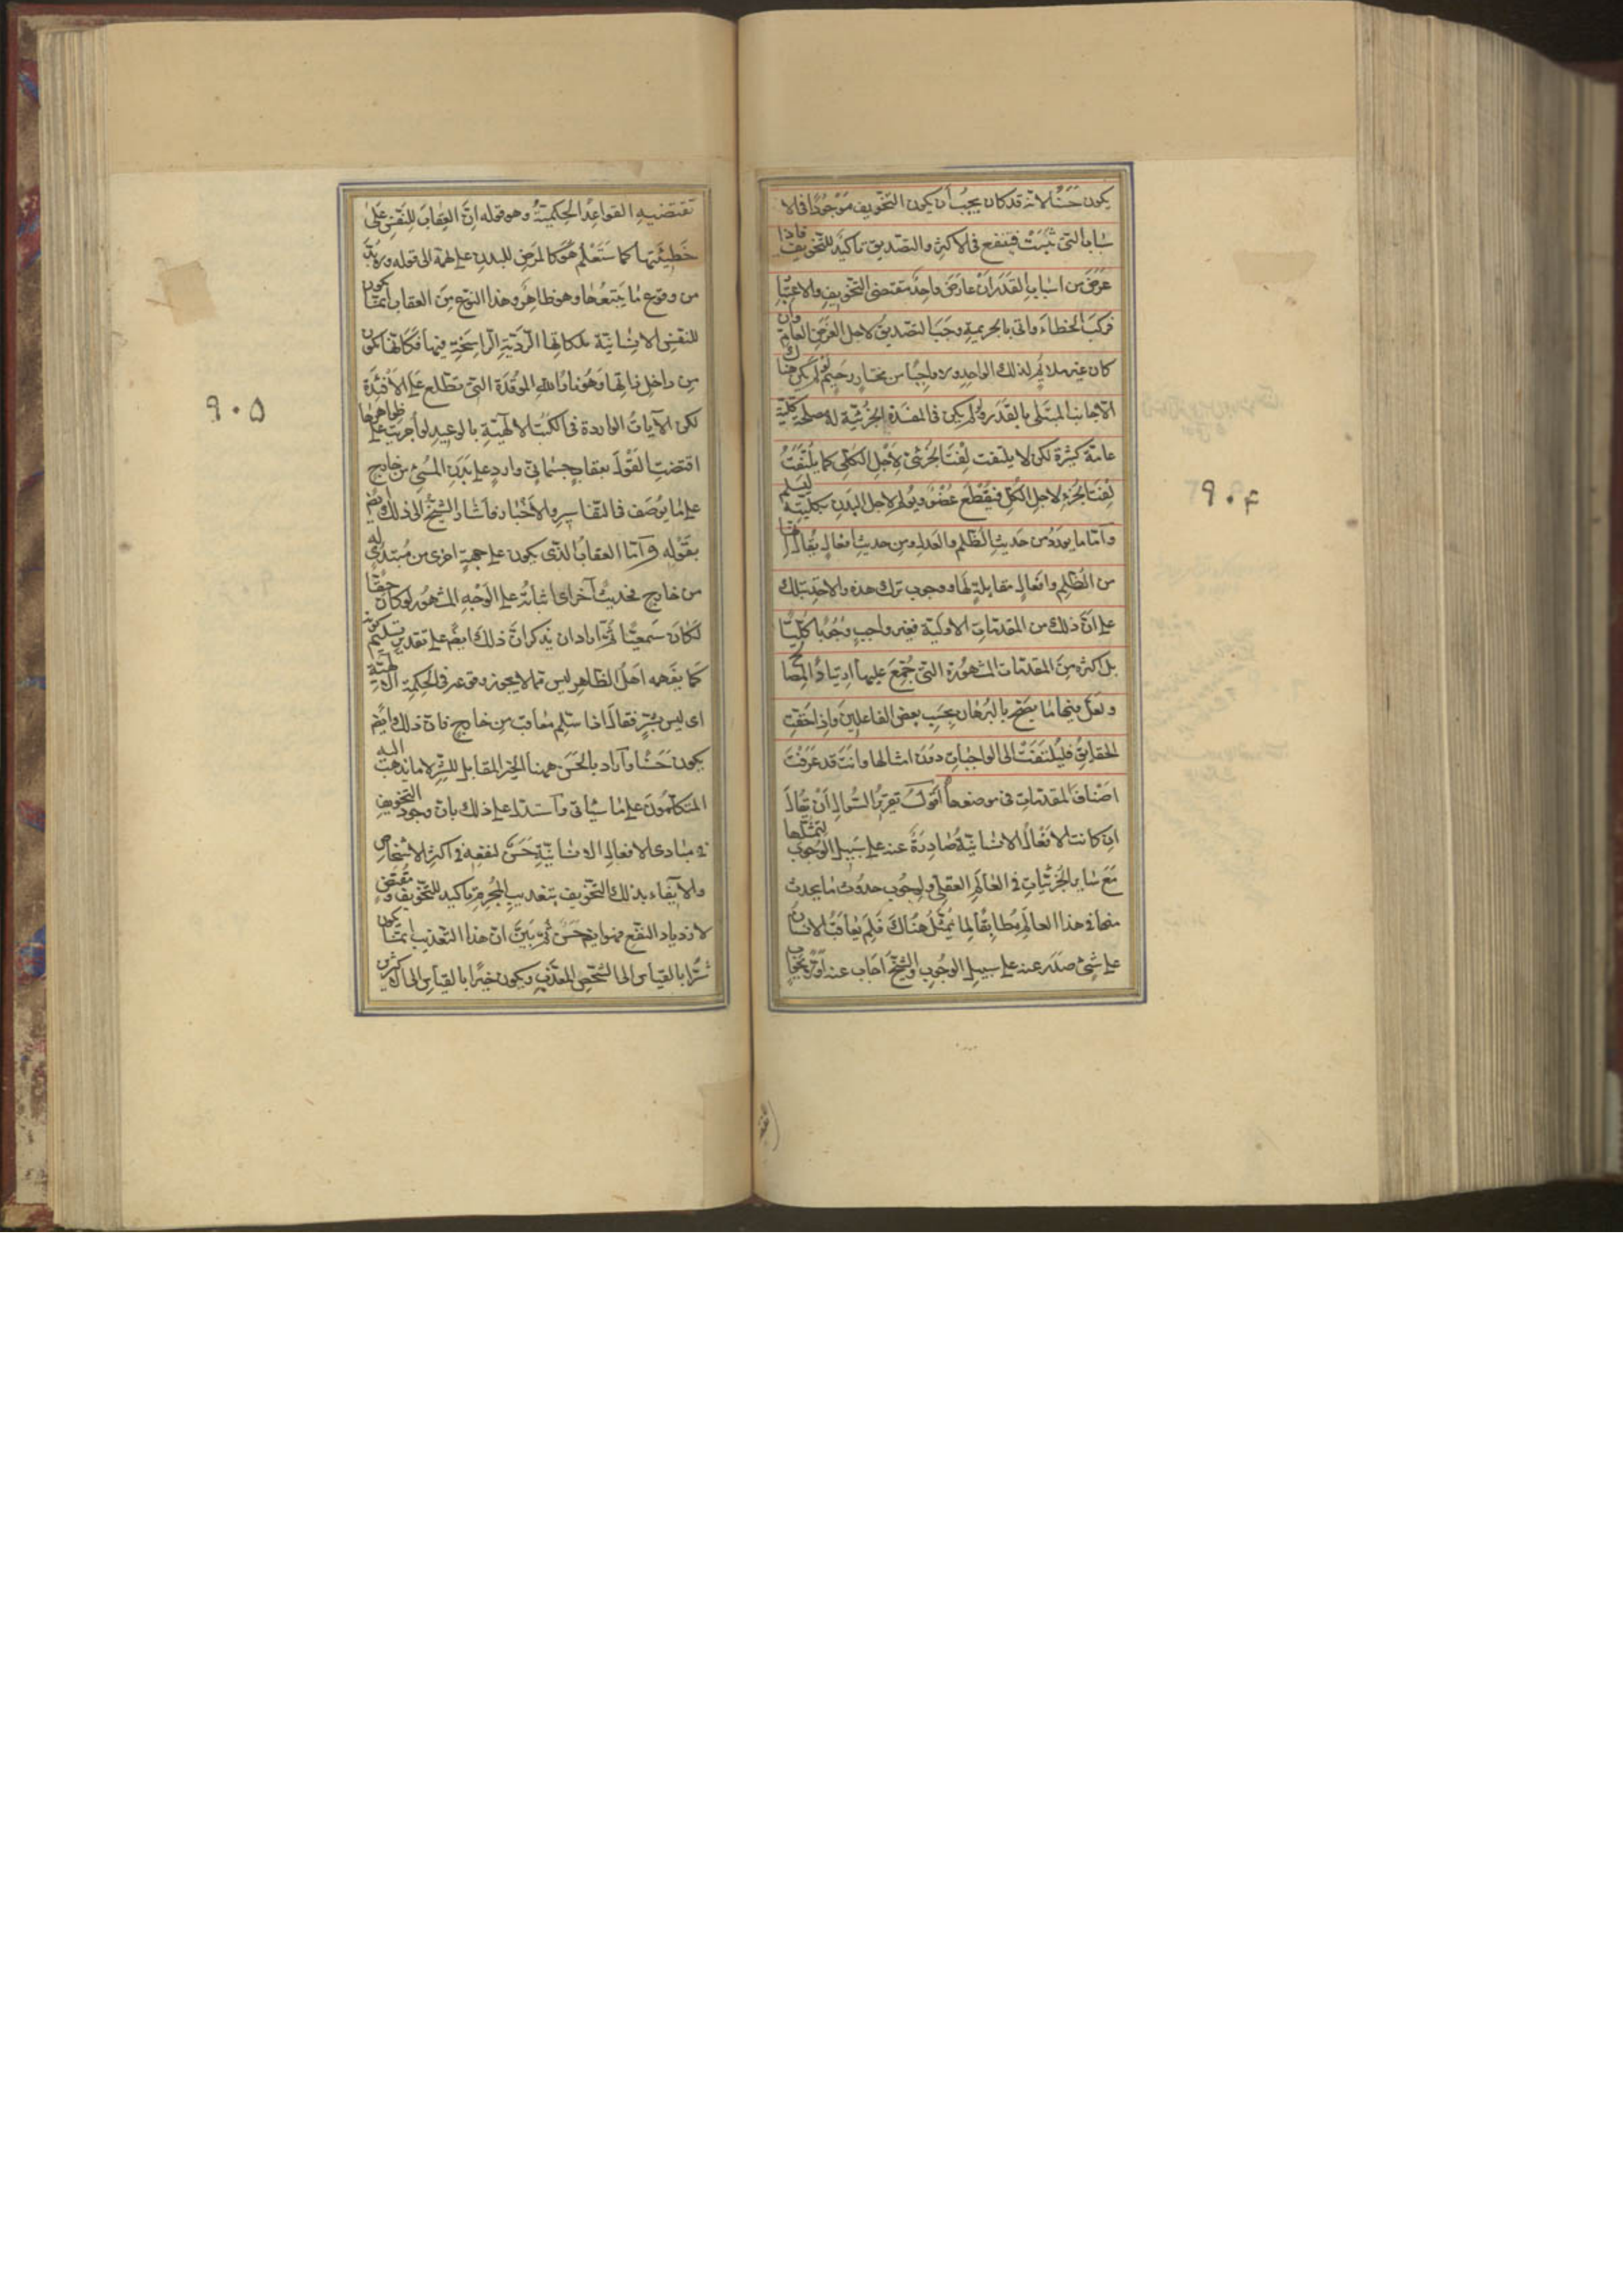 يكون حَسَنًا لانه قد كان يجبُ أن يكون التخويف مَوْجودًا فى الا
سْبابِ التى ثَبَتَتْ فينفع فى الاكثر والتصديق تاكيدٌ للتخويف فاذا
عَرَضَ من اسباب القَدَر اَنْ عارَضَ واحِدٌ مقتضى التخويف والاعتبار
فركبَ الخطاءَ واتى بالجريمة وجَبَ التصديقُ لاجل الغَرَضِ العامّ وان
كان غير ملايم لذلك الواحد ولا واجبًا من مختارٍ رحيم لو لم يكن هناك
الا جانب المبتلى بالقدر ولم يكن فى المفسدة الجُزئيّة له مصلحة كلّيّة
عامّة كثيرة لكن لا يلتفت لِفْتَ الجُزئى لِاَجْلِ الكُلّى كما لا يُلتَفَتُ
لِفْتَ الجُزءِ لاجل الكُلّ فيُقْطَع عُضْوٌ ويُولَم لاجل البَدَن بكليّته ليَسلَم
وَاَمّا ما يورَدُ من حَديثِ الظُلم والعَدل ومن حديث افعال يُقال انها
من الظُلم وافعالٍ مقابلةٍ لَها ووجوب ترك هذه والاخذ بتلك
على انّ ذلك من المقدمات الاوليّة فغير واجبٍ وُجُوبًا كُلّيًّا
بل اكثره مِنَ المقدمات المشهورة التى جُمِعَ عليها ارتيادُ المصالح
ولعل فيها ما يصحّ بالبُرهان بحَسب بعض الفاعلينَ واذا حققت
الحقايقُ فليُلتَفَتْ الى الواجبات دُونَ امثالها وانتَ قد عَرَفْتَ
اصْنافَ المقدمات فى موضعها اَقُولُ تقريرُ السُوال اَن يُقالَ
ان كانت الافعالُ الانسانيّةُ صادِرَةً عنه على سَبيل الوجوب لتَمثُّلها
مَعَ ساير الجُزئيّاتِ فى العالَم العقلى ولِوجُوب حدُوث ما يحدث
منها فى هذا العالَم مُطابِقًا لِما تمثّل هُناكَ فَلِمَ يُعاقَبُ الانسان
على شىءٍ صَدَر عنه على سبيل الوجُوب والشيخُ اجاب عنه اوّلا بجواب
٩٠٤
تقتضيه القواعِدُ الحِكمِيّةُ وهو قوله اِنّ العِقابَ للنَفْس عَلى
خَطِيئَتِها كما ستَعْلَم هُوَ كالمَرَض للبدن على نهمه الى قوله ولا بُدّ
من وقوع ما يَتبَعُها وهو ظاهِرٌ وهذا النوع مِنَ العقاب انما يكون
للنفس الانسانيّة بملكاتها الرَديّةِ الراسِخَةِ فيها فكانها تكون
من داخِل ذاتِها وَهُوَ نارُ اللهِ المُوقَدَة التى تطّلع عَلى الاَفْئِدَة
لكن الآياتُ الواردة فى الكتب الالهيّةِ بالوعيد لو اُجريت على ظواهرها
اقتضت القَوْلَ بعقابٍ جسمانىّ واردٍ على بَدَنِ المُسىء من خارج
على ما يوصَف فى التفاسير والاَخْبار فاشار الشيخُ الى ذلك ايضًا
بقَوْله وَاَمّا العقابُ الذى يكون على جهةٍ اخرى من مُبتدئ له
من خارج فحديثٌ آخر اى اثباتُه على الوَجْهِ المشهُور لو كان حقًّا
لكانَ سَمعيًّا ثُمّ اراد ان يذكر انّ ذلك ايضًا على تقدير تسليم كونه
كما يفهمه اهلُ الظاهر ليس مما لا يجوز وقوعه فى الحكمة الالهيّة
اى ليس بشرّ فقالَ اذا سُلِّم معاقب من خارج فانّ ذلك ايضًا
يكون حَسَنًا واَرادَ بالحَسَن ههنا الخيرَ المقابل للشرّ لا ما يذهب اليه
المتكلّمُونَ على ما سَيأتى واستدلّ على ذلك بان وجود التخويف
فى مبادى الافعال الانسانيّةِ حَسَنٌ لنفعِه فى اكثر الاشخاص
والايفاء بذلك التخويف بتعذيب المُجرم تاكيد للتخويف ومُقتَضٍ
لازدياد النفع فهو ايضًا حَسَنٌ ثُمّ بَيَّنَ انّ هذا التعذيب انما يكون
شَرًّا بالقياس الى الشخص المعذَّب ويكون خيرًا بالقياس الى اكثر
٩٠۵